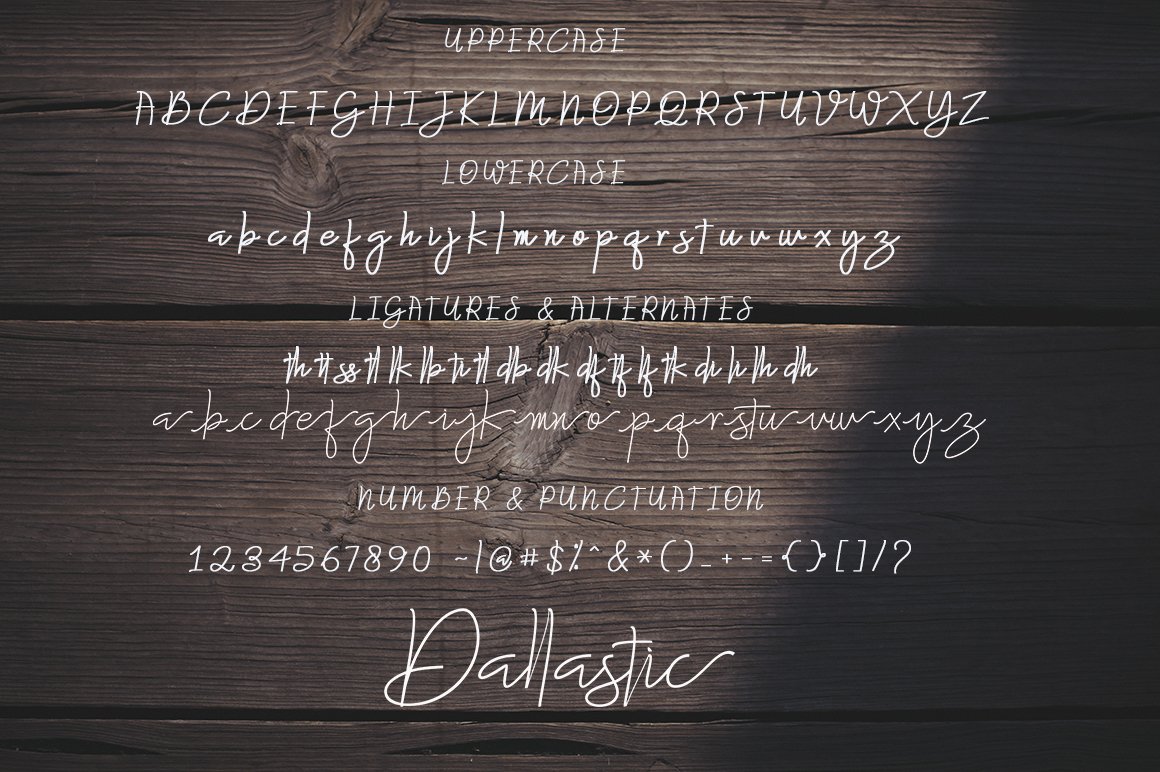 UPPERCASE
ABCDEFGHIJKLMNOPQRSTUVWXYZ
LOWERCASE
abcdefghijklmnopqrstuvwxyz
LIGATURES & ALTERNATES
th tt ss tl lk lb ti tl db dk df tf lf tk di li lh dh
abcdefghijkmnopqrstuvwxyz
NUMBER & PUNCTUATION
1234567890 ~|@#$%^&*()_+-={}[]/?
Dallastic